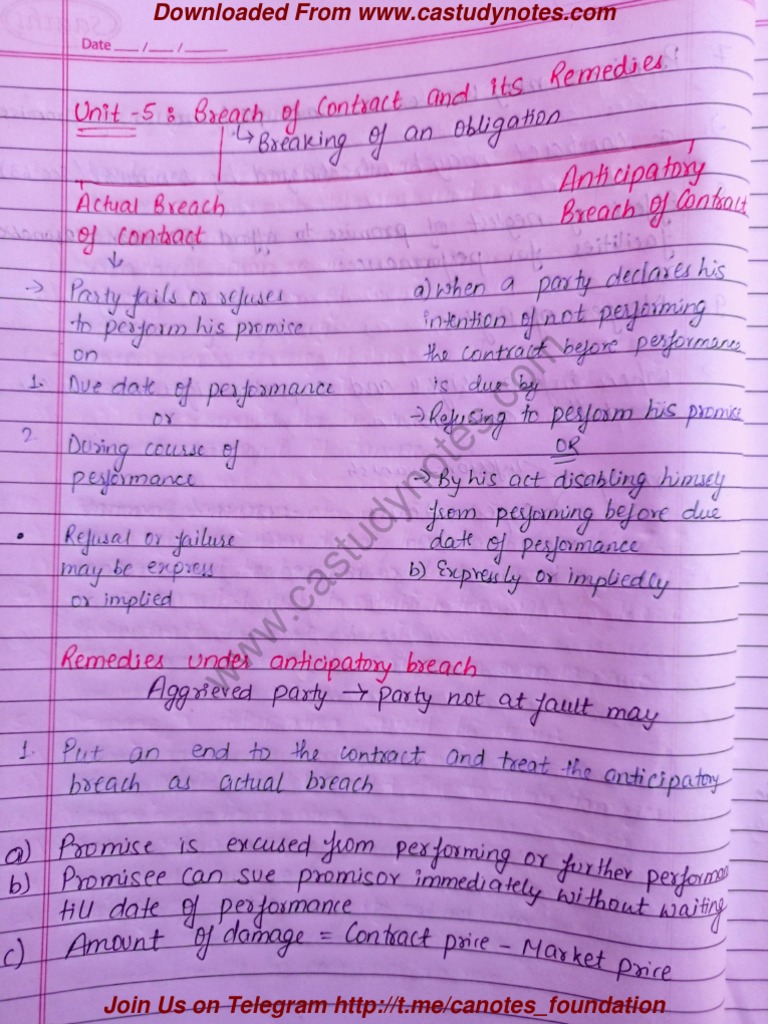 Downloaded From www.castudynotes.com
Date __/__/____
Unit -5 : Breach of Contract and its Remedies:
↳ Breaking of an obligation
Actual Breach
of contract
↓
→ Party fails or refuses
to perform his promise
on
1. Due date of performance
or
2. During course of
performance
• Refusal or failure
may be express
or implied
Anticipatory
Breach of Contract
a) When a party declares his
intention of not performing
the contract before performance
is due by
→ Refusing to perform his promise
OR
→ By his act disabling himself
from performing before due
date of performance
b) Expressly or impliedly
www.castudynotes.com
Remedies under anticipatory breach
Aggrieved party → party not at fault may
1. Put an end to the contract and treat the anticipatory
breach as actual breach
a) Promise is excused from performing or further performan
b) Promisee can sue promisor immediately without waiting
till date of performance
c) Amount of damage = Contract price - Market price
Join Us on Telegram http://t.me/canotes_foundation